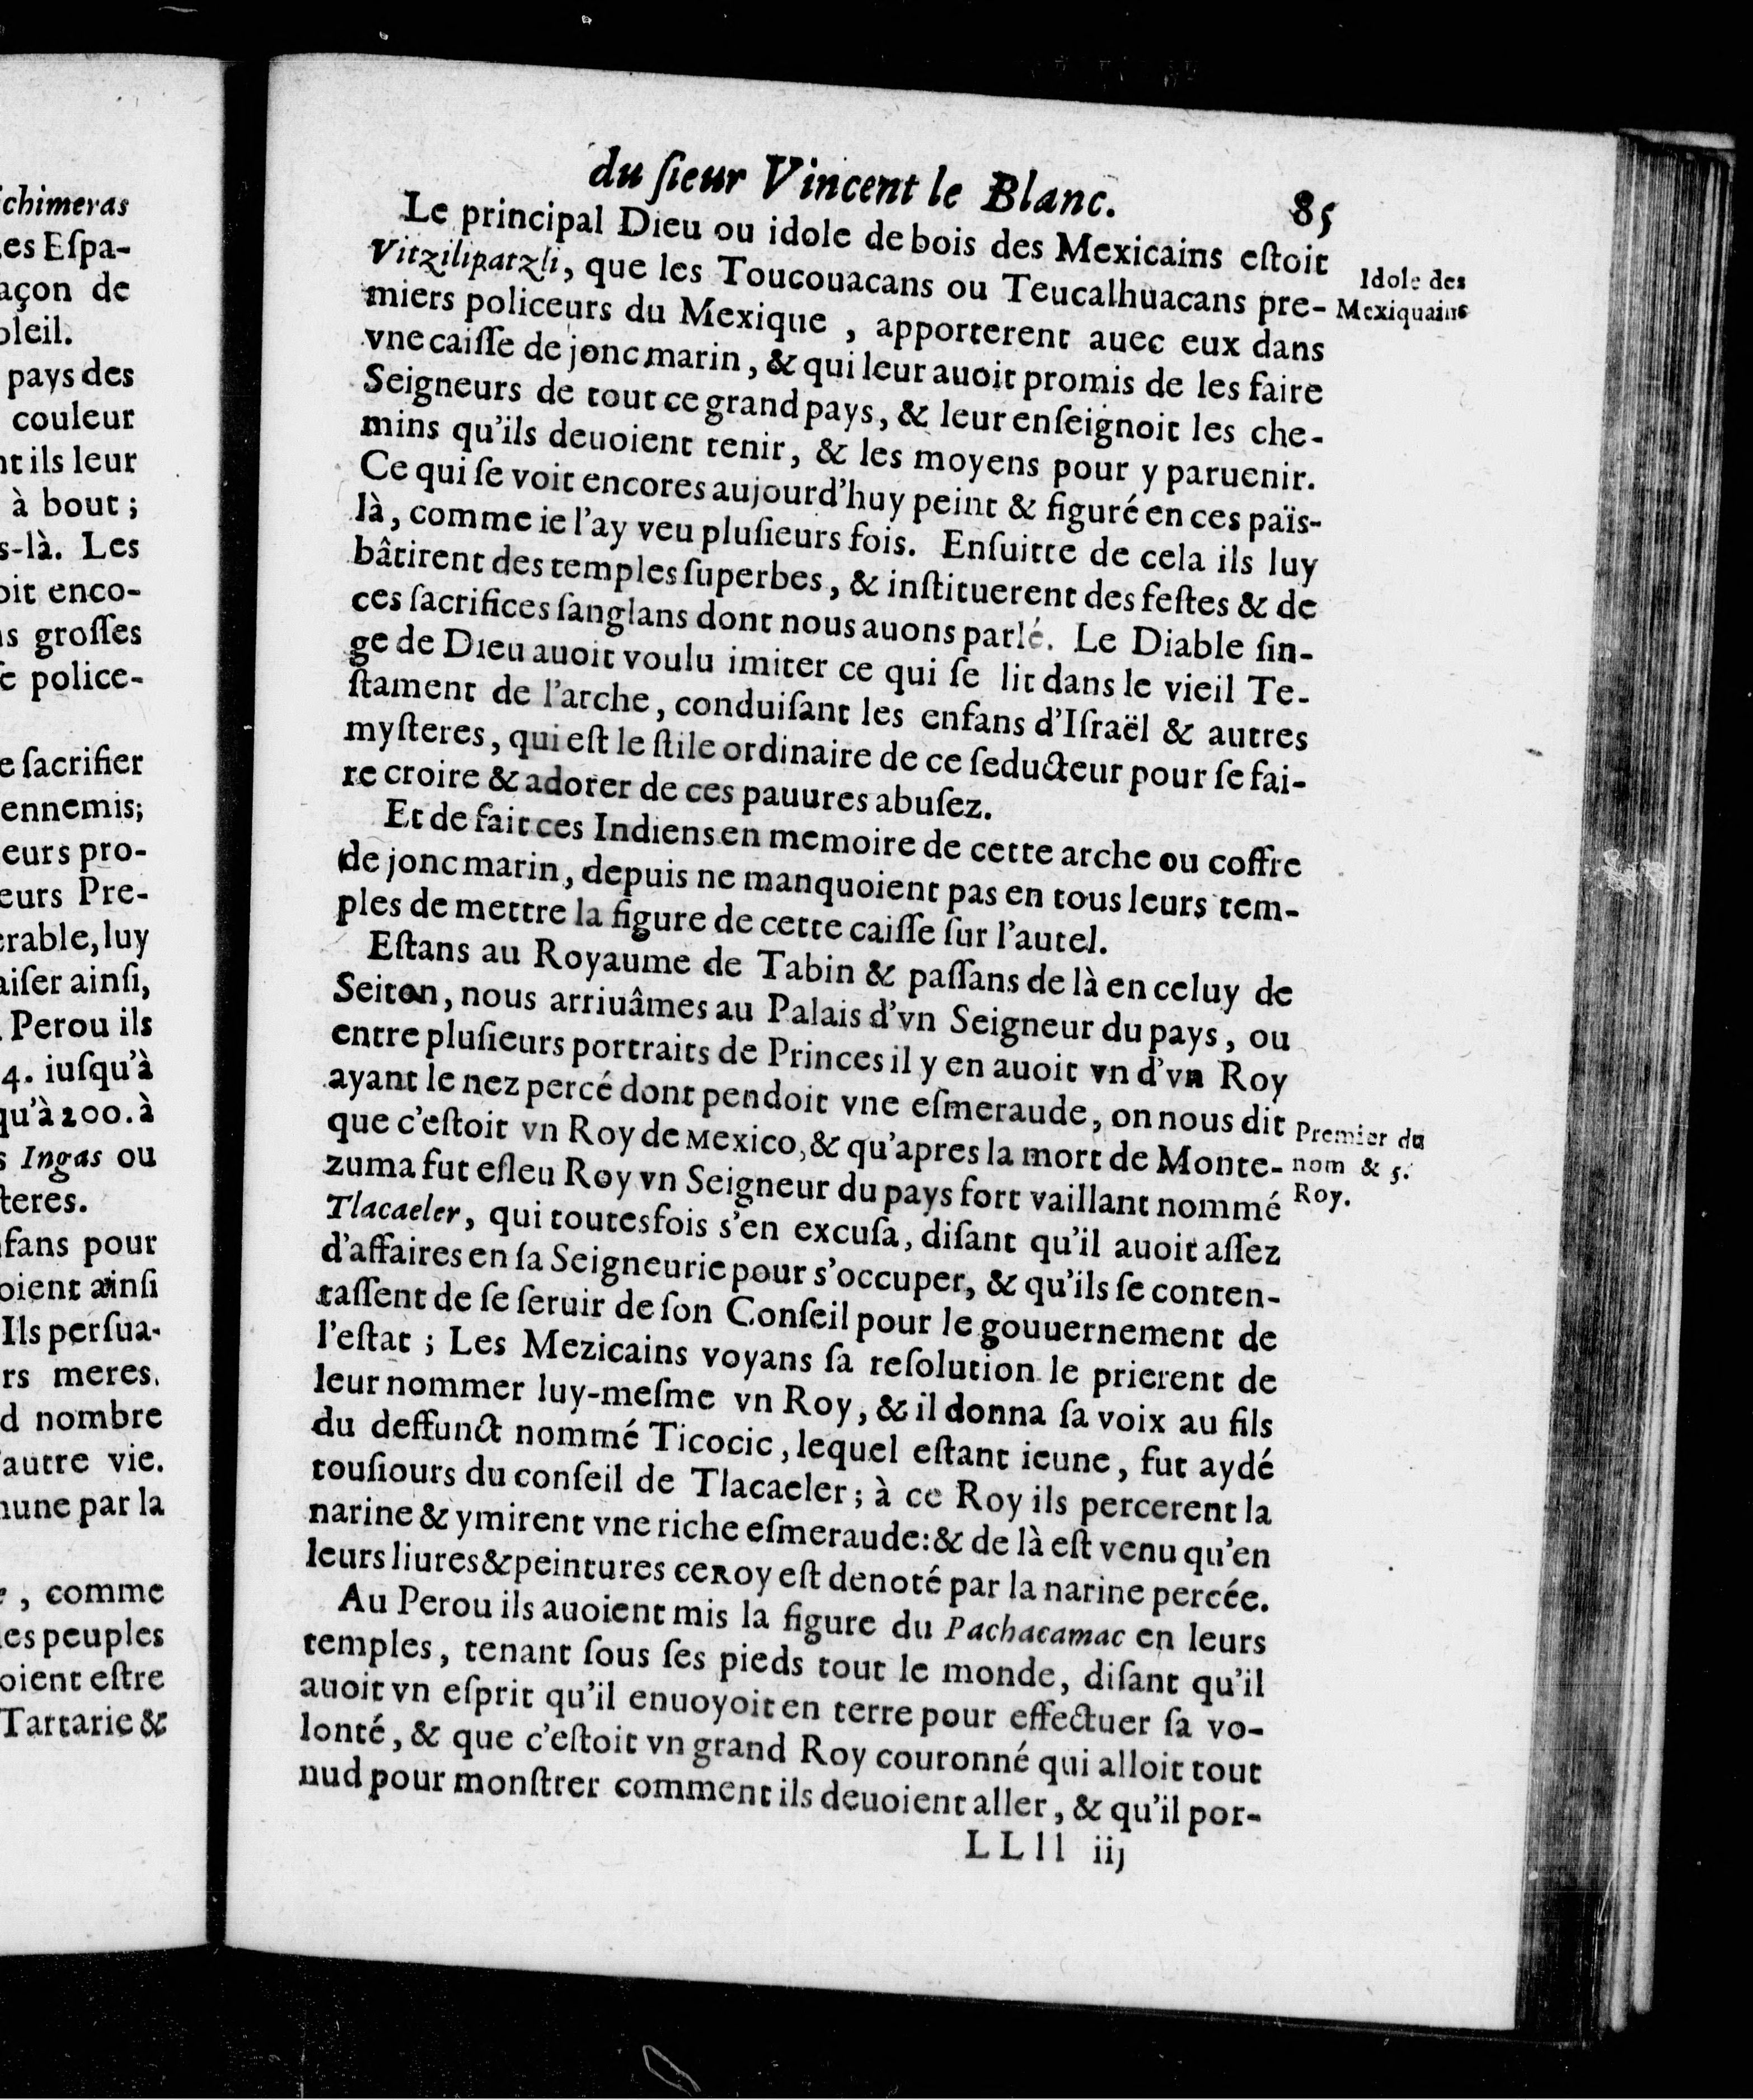 chimeras
es Eſpa-
açon de
oleil.
pays des
couleur
nt ils leur
à bout ;
s-là. Les
oit enco-
ns groſſes
e police-
e ſacrifier
ennemis;
eurs pro-
eurs Pre-
erable, luy
aiſer ainſi,
Perou ils
4. iuſqu'à
qu'à 200. à
s Ingas ou
teres.
nfans pour
oient ainſi
Ils perſua-
rs meres.
d nombre
autre vie.
mune par la
, comme
les peuples
oient eſtre
Tartarie &
du ſieur Vincent le Blanc. 85
Le principal Dieu ou idole de bois des Mexicains eſtoit
Vitzilipatzli, que les Toucouacans ou Teucalhuacans pre-
miers policeurs du Mexique , apporterent auec eux dans
vne caiſſe de jonc marin, & qui leur auoit promis de les faire
Seigneurs de tout ce grand pays, & leur enſeignoit les che-
mins qu'ils deuoient tenir, & les moyens pour y paruenir.
Ce qui ſe voit encores aujourd'huy peint & figuré en ces païs-
là, comme ie l'ay veu pluſieurs fois. Enſuitte de cela ils luy
bâtirent des temples ſuperbes, & inſtituerent des feſtes & de
ces ſacrifices ſanglans dont nous auons parlé. Le Diable ſin-
ge de Dieu auoit voulu imiter ce qui ſe lit dans le vieil Te-
ſtament de l'arche, conduiſant les enfans d'Iſraël & autres
myſteres, qui eſt le ſtile ordinaire de ce ſeducteur pour ſe fai-
re croire & adorer de ces pauures abuſez.
Et de fait ces Indiens en memoire de cette arche ou coffre
de jonc marin, depuis ne manquoient pas en tous leurs tem-
ples de mettre la figure de cette caiſſe ſur l'autel.
Eſtans au Royaume de Tabin & paſſans de là en celuy de
Seiton, nous arriuâmes au Palais d'vn Seigneur du pays, ou
entre pluſieurs portraits de Princes il y en auoit vn d'vn Roy
ayant le nez percé dont pendoit vne eſmeraude, on nous dit
que c'eſtoit vn Roy de Mexico, & qu'apres la mort de Monte-
zuma fut eſleu Roy vn Seigneur du pays fort vaillant nommé
Tlacaeler, qui toutesfois s'en excuſa, diſant qu'il auoit aſſez
d'affaires en ſa Seigneurie pour s'occuper, & qu'ils ſe conten-
taſſent de ſe ſeruir de ſon Conſeil pour le gouuernement de
l'eſtat ; Les Mezicains voyans ſa reſolution le prierent de
leur nommer luy-meſme vn Roy, & il donna ſa voix au fils
du deffunct nommé Ticocic, lequel eſtant ieune, fut aydé
touſiours du conſeil de Tlacaeler ; à ce Roy ils percerent la
narine & y mirent vne riche eſmeraude: & de là eſt venu qu'en
leurs liures & peintures ce Roy eſt denoté par la narine percée.
Au Perou ils auoient mis la figure du Pachacamac en leurs
temples, tenant ſous ſes pieds tout le monde, diſant qu'il
auoit vn eſprit qu'il enuoyoit en terre pour effectuer ſa vo-
lonté, & que c'eſtoit vn grand Roy couronné qui alloit tout
nud pour monſtrer comment ils deuoient aller, & qu'il por-
LLll iij
Idole des
Mexiquains
Premier du
nom & 5.
Roy.